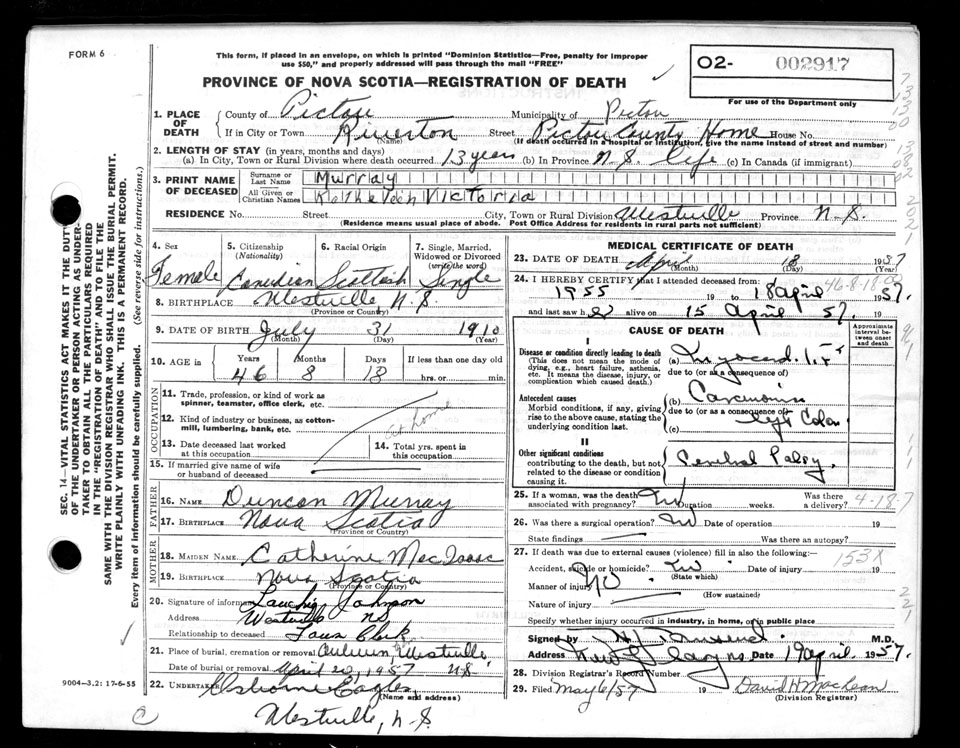 FORM 6
This form, if placed in an envelope, on which is printed "Dominion Statistics—Free, penalty for improper
use $50," and properly addressed will pass through the mail "FREE"
PROVINCE OF NOVA SCOTIA—REGISTRATION OF DEATH
O2- 002917
For use of the Department only
1. PLACE OF DEATH
County of Pictou Municipality of Pictou
If in City or Town Riverton Street Pictou County Home House No.
(Name) (If death occurred in a hospital or institution, give the name instead of street and number)
2. LENGTH OF STAY (in years, months and days)
(a) In City, Town or Rural Division where death occurred 13 years (b) In Province N.S. life (c) In Canada (if immigrant)
3. PRINT NAME OF DECEASED
Surname or Last Name Murray
All Given or Christian Names Katheleen Victoria
RESIDENCE No. Street City, Town or Rural Division Westville Province N.S.
(Residence means usual place of abode. Post Office Address for residents in rural parts not sufficient)
4. Sex Female
5. Citizenship (Nationality) Canadian
6. Racial Origin Scottish
7. Single, Married, Widowed or Divorced (write the word) Single
8. BIRTHPLACE Westville N.S.
(Province or Country)
9. DATE OF BIRTH July 31 1910
(Month) (Day) (Year)
10. AGE in Years Months Days If less than one day old
46 8 18 hrs. or min.
OCCUPATION
11. Trade, profession, or kind of work as
spinner, teamster, office clerk, etc.
12. Kind of industry or business, as cotton-
mill, lumbering, bank, etc.
at home
13. Date deceased last worked
at this occupation
14. Total yrs. spent in
this occupation
15. If married give name of wife
or husband of deceased
FATHER
16. NAME Duncan Murray
17. BIRTHPLACE Nova Scotia
(Province or Country)
MOTHER
18. MAIDEN NAME Catherine MacIsaac
19. BIRTHPLACE Nova Scotia
(Province or Country)
20. Signature of informant Johnson
Address Westville NS
Relationship to deceased Town Clerk
21. Place of burial, cremation or removal Auburn, Westville
Date of burial or removal April 20, 1957 N.S.
22. UNDERTAKER Osborne Eagles
(Name and address)
Westville, N.S.
9004—3.2: 17-6-55
SEC. 14—VITAL STATISTICS ACT MAKES IT THE DUTY
OF THE UNDERTAKER OR PERSON ACTING AS UNDER-
TAKER TO OBTAIN ALL THE PARTICULARS REQUIRED
IN THE "REGISTRATION OF DEATH" AND TO FILE THE
SAME WITH THE DIVISION REGISTRAR WHO SHALL ISSUE THE BURIAL PERMIT.
WRITE PLAINLY WITH UNFADING INK. THIS IS A PERMANENT RECORD.
Every item of information should be carefully supplied. (See reverse side for instructions.)
MEDICAL CERTIFICATE OF DEATH
23. DATE OF DEATH April 18 1957
(Month) (Day) (Year)
24. I HEREBY CERTIFY that I attended deceased from:
46-8-18
1955 19 to 18 April 1957.
and last saw her alive on 15 April 57.
CAUSE OF DEATH
Approximate interval between onset and death
I
Disease or condition directly leading to death
(This does not mean the mode of
dying, e.g., heart failure, asthenia,
etc. It means the disease, injury, or
complication which caused death.)
(a)
due to (or as a consequence of)
Antecedent causes
Morbid conditions, if any, giving
rise to the above cause, stating the
underlying condition last.
(b) Carcinoma
due to (or as a consequence of)
(c) Colon
II
Other significant conditions
contributing to the death, but not
related to the disease or condition
causing it.
Cerebral Palsy.
25. If a woman, was the death No Was there
associated with pregnancy? Duration weeks. a delivery?
4-18-7
26. Was there a surgical operation? No Date of operation 19
State findings Was there an autopsy?
27. If death was due to external causes (violence) fill in also the following:—
153X
Accident, suicide or homicide? No Date of injury 19
(State which)
Manner of injury No
(How sustained)
Nature of injury
Specify whether injury occurred in industry, in home, or in public place
Signed by M.D.
Address New Glasgow NS Date 19 April. 1957.
28. Division Registrar's Record Number
29. Filed May 6/57 19 David H MacLean
(Division Registrar)